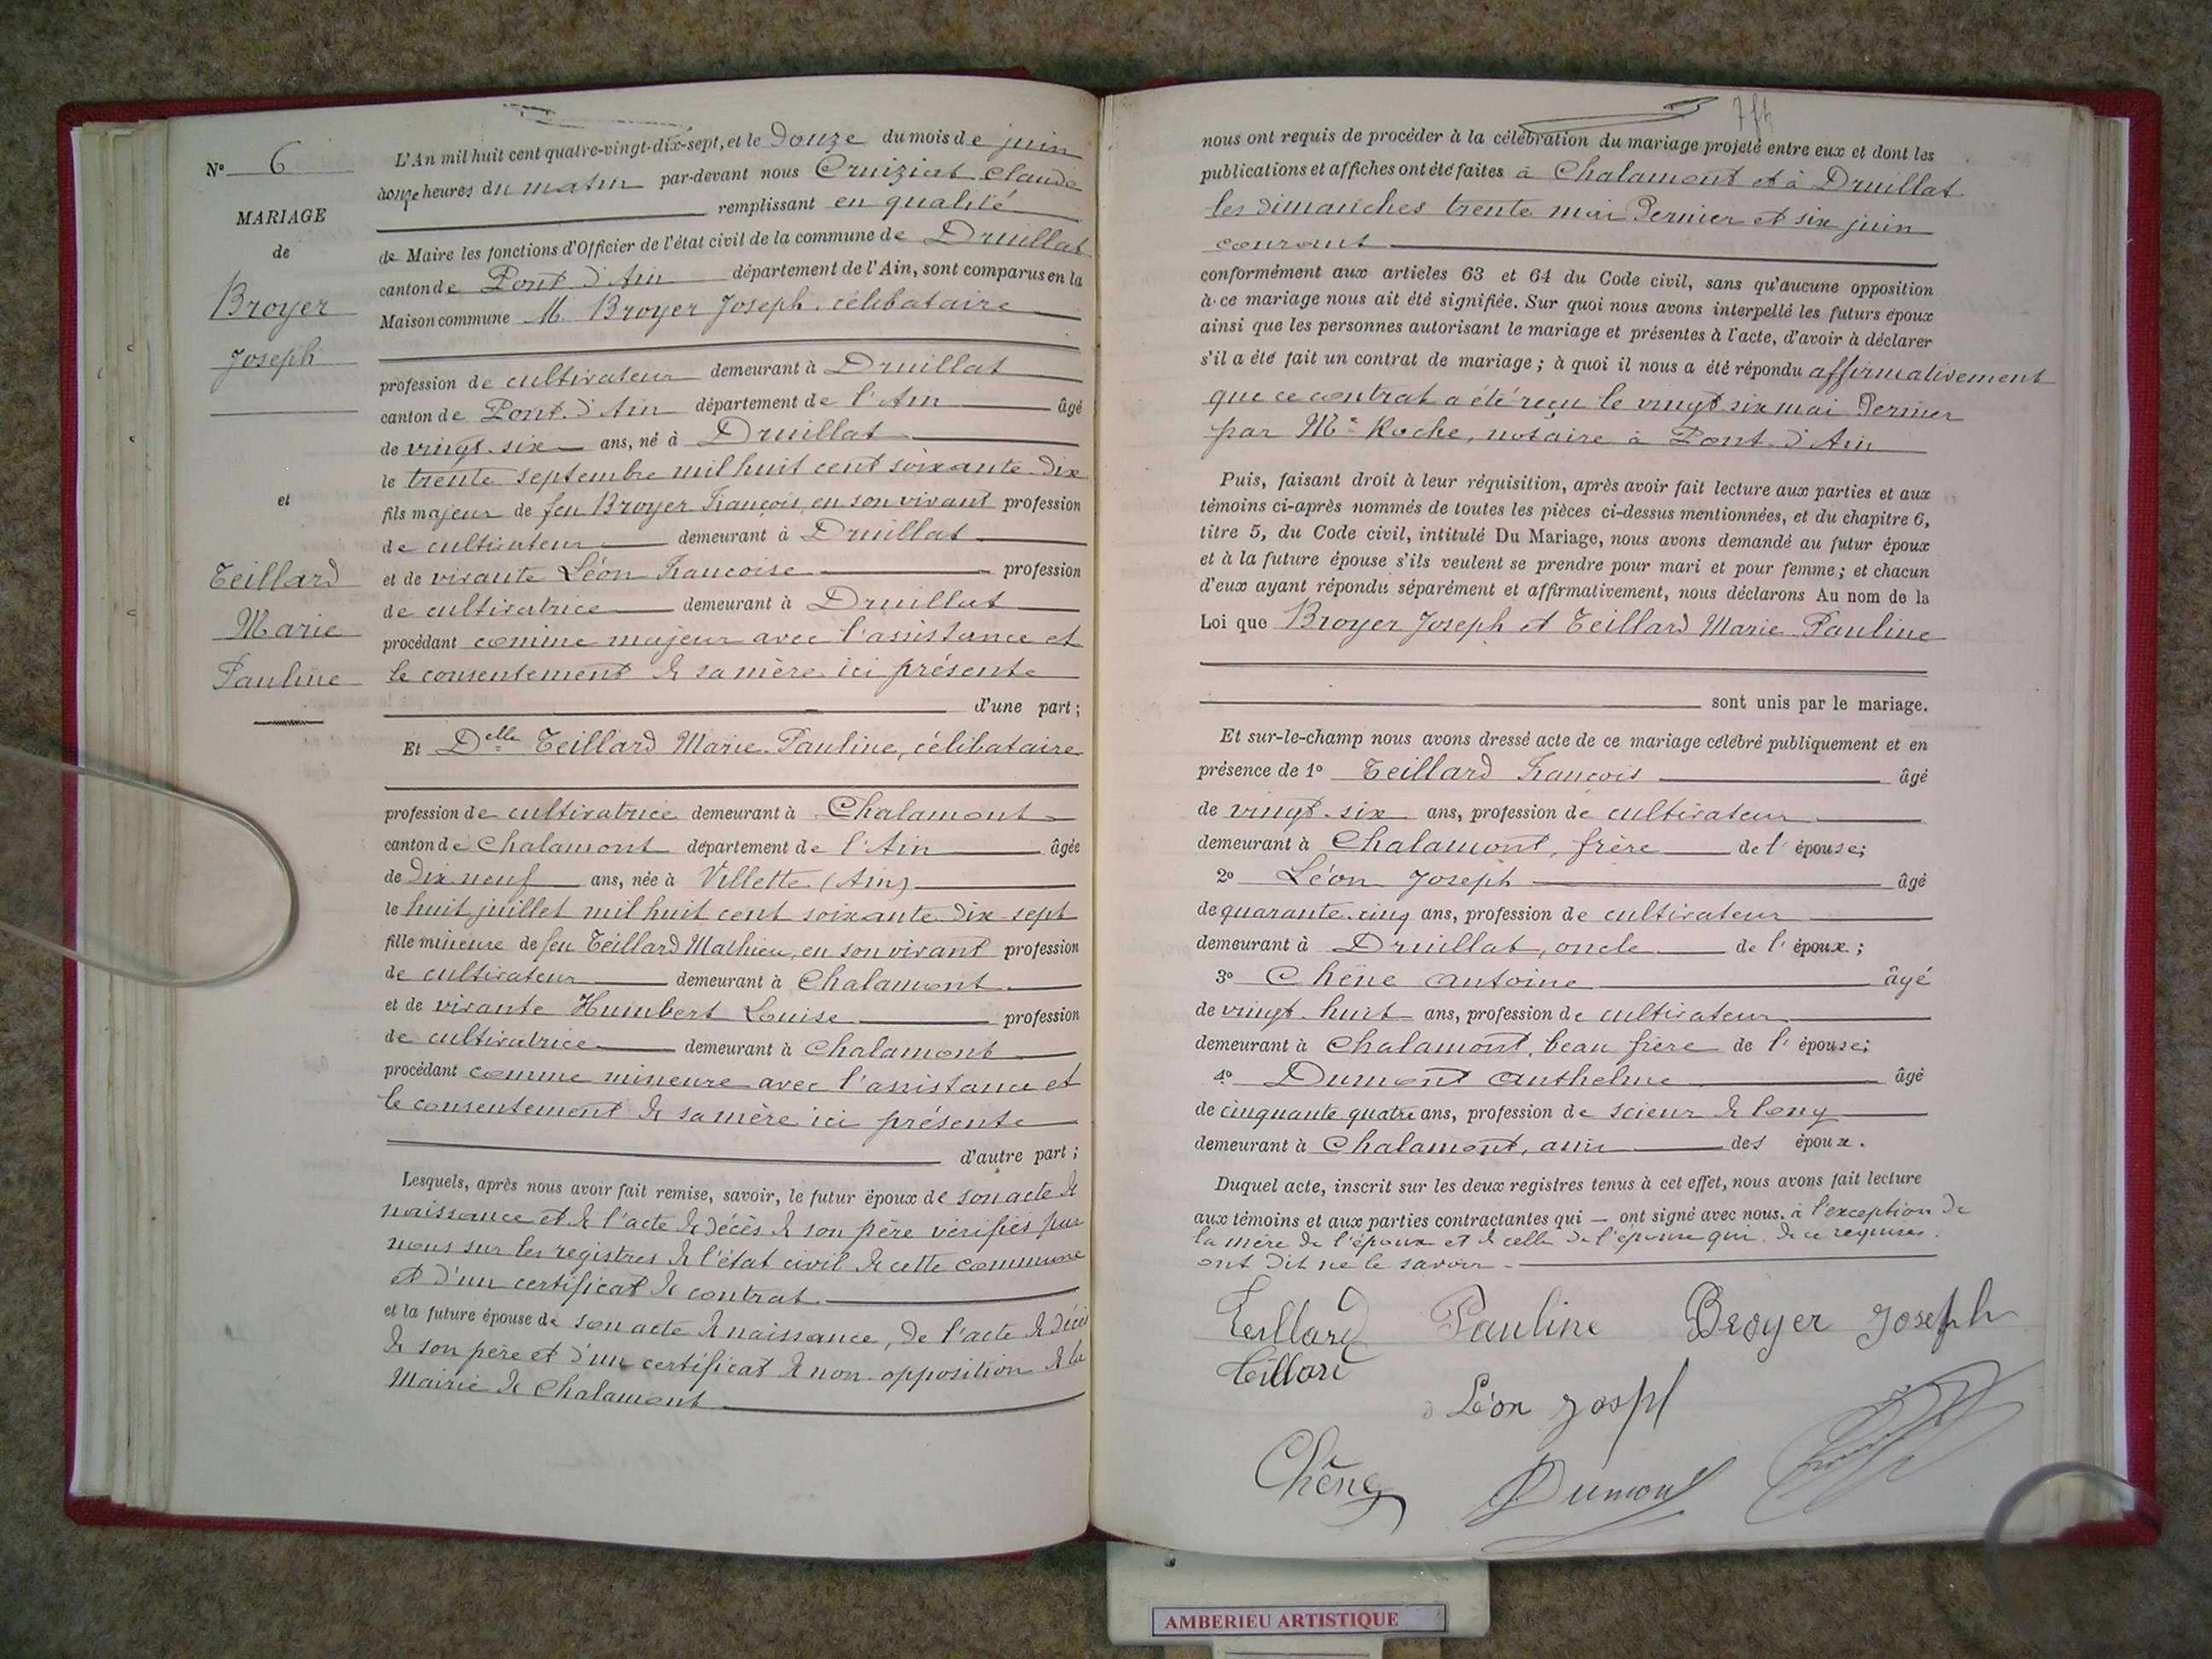 N° 6
MARIAGE
de
Broyer
Joseph
et
Teillard
Marie
Pauline
L'An mil huit cent quatre-vingt-dix-sept, et le douze du mois de juin
heures du matin par-devant nous Cruiziat Claude
remplissant en qualité
de Maire les fonctions d'Officier de l'état civil de la commune de Druillat
canton de Pont d'Ain département de l'Ain, sont comparus en la
Maison commune M. Broyer Joseph, célibataire
profession de cultivateur demeurant à Druillat
canton de Pont d'Ain département de l'Ain âgé
de vingt-six ans, né à Druillat
le trente septembre mil huit cent soixante-dix
fils majeur de feu Broyer François, en son vivant profession
de cultivateur demeurant à Druillat
et de vivante Léon Francoise profession
de cultivatrice demeurant à Druillat
procédant comme majeur avec l'assistance et
le consentement de sa mère ici présente
d'une part;
Et Delle Teillard Marie-Pauline, célibataire
profession de cultivatrice demeurant à Chalamont
canton de Chalamont département de l'Ain âgée
de dix neuf ans, née à Villette (Ain)
le huit juillet mil huit cent soixante-dix-sept
fille mineure de feu Teillard Mathieu, en son vivant profession
de cultivateur demeurant à Chalamont
et de vivante Humbert Louise profession
de cultivatrice demeurant à Chalamont
procédant comme mineure avec l'assistance et
le consentement de sa mère ici présente
d'autre part;
Lesquels, après nous avoir fait remise, savoir, le futur époux de son acte de
naissance et de l'acte de décès de son père vérifiés par
nous sur les registres de l'état civil de cette commune
et d'un certificat de contrat.
et la future épouse de son acte de naissance, de l'acte de décès
de son père et d'un certificat de non opposition de la
Mairie de Chalamont
nous ont requis de procéder à la célébration du mariage projeté entre eux et dont les
publications et affiches ont été faites à Chalamont et à Druillat
les dimanches trente mai dernier et six juin
courant
conformément aux articles 63 et 64 du Code civil, sans qu'aucune opposition
à ce mariage nous ait été signifiée. Sur quoi nous avons interpellé les futurs époux
ainsi que les personnes autorisant le mariage et présentes à l'acte, d'avoir à déclarer
s'il a été fait un contrat de mariage; à quoi il nous a été répondu affirmativement
que ce contrat a été reçu le vingt six mai dernier
par Me Roche, notaire à Pont-d'Ain
Puis, faisant droit à leur réquisition, après avoir fait lecture aux parties et aux
témoins ci-après nommés de toutes les pièces ci-dessus mentionnées, et du chapitre 6,
titre 5, du Code civil, intitulé Du Mariage, nous avons demandé au futur époux
et à la future épouse s'ils veulent se prendre pour mari et pour femme; et chacun
d'eux ayant répondu séparément et affirmativement, nous déclarons Au nom de la
Loi que Broyer Joseph et Teillard Marie Pauline
sont unis par le mariage.
Et sur-le-champ nous avons dressé acte de ce mariage célébré publiquement et en
présence de 1° Teillard Francois âgé
de vingt-six ans, profession de cultivateur
demeurant à Chalamont, frère de l'épouse;
2° Léon Joseph âgé
de quarante-cinq ans, profession de cultivateur
demeurant à Druillat, oncle de l'époux;
3° Chêne Antoine âgé
de vingt-huit ans, profession de cultivateur
demeurant à Chalamont, beau frère de l'épouse;
4° Dumont Anthelme âgé
de cinquante quatre ans, profession de scieur de long
demeurant à Chalamont, ami des époux.
Duquel acte, inscrit sur les deux registres tenus à cet effet, nous avons fait lecture
aux témoins et aux parties contractantes qui ont signé avec nous. à l'exception de
la mère de l'époux et de celle de l'épouse qui, de ce requises
ont dit ne le savoir.
Teillard Pauline Broyer Joseph
Teillard
Léon Josph
Chêne Dumont
AMBERIEU ARTISTIQUE